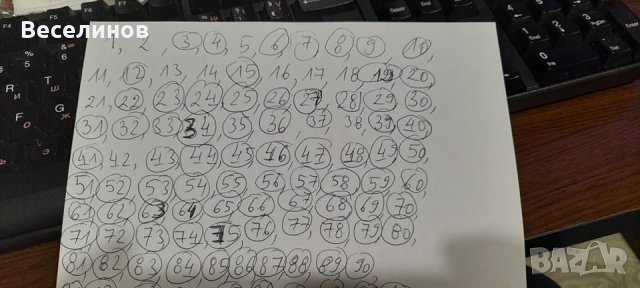 Веселинов
1, 2, 3, 4, 5, 6, 7, 8, 9 10,
11, 12, 13, 14, 15, 16, 17, 18, 19, 20,
21, 22, 23, 24, 25, 26, 27, 28, 29, 30,
31, 32, 33, 34, 35, 36, 37, 38, 39, 40,
41, 42, 43, 44, 45, 46, 47, 48, 49, 50,
51, 52, 53, 54, 55, 56, 57, 58, 59, 60,
61, 62, 63, 64, 65, 66, 67, 68, 69, 70,
71, 72, 73, 74, 75, 76, 77, 78, 79, 80,
81, 82, 83, 84, 85, 86, 87, 88, 89, 90,
BAZAR